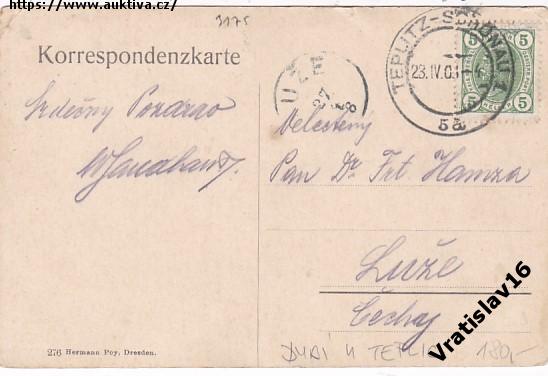 https://www.auktiva.cz/
3175
Korrespondenzkarte
TEPLITZ-SCHÖNAU 1
23.IV.08
5a
5 5
5 5
UŽE
27
8
Srdečný Pozdrav
Velectěný
Pan Dr Frt Hamza
Luže
Čechy
276 Hermann Poy, Dresden.
180,-
Vratislav16